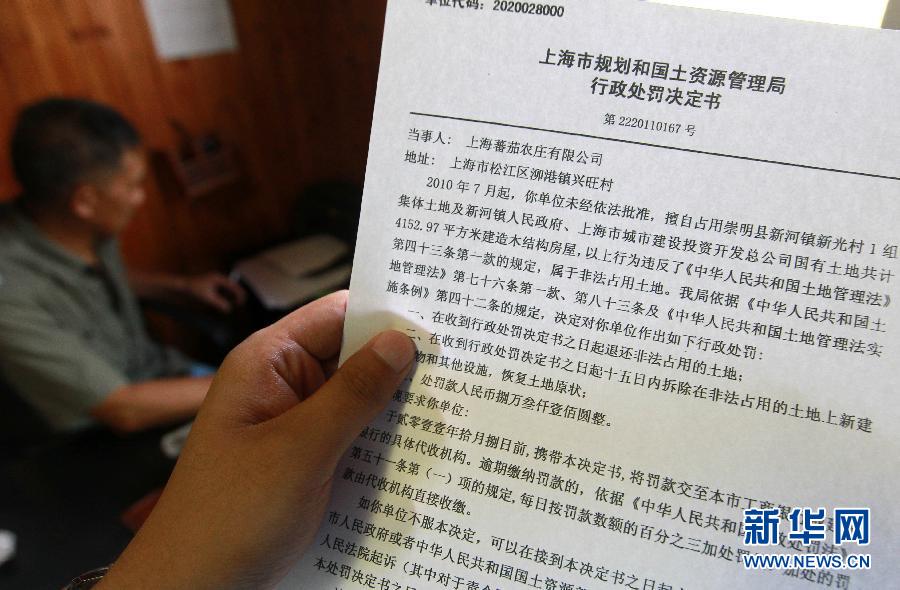 单位代码：2020028000
上海市规划和国土资源管理局
行政处罚决定书
第 2220110167 号
当事人： 上海蕃茄农庄有限公司
地址： 上海市松江区泖港镇兴旺村
2010 年 7 月起，你单位未经依法批准，擅自占用崇明县新河镇新光村 1 组
集体土地及新河镇人民政府、上海市城市建设投资开发总公司国有土地共计
4152.97 平方米建造木结构房屋，以上行为违反了《中华人民共和国土地管理法》
第四十三条第一款的规定，属于非法占用土地。我局依据《中华人民共和国土
地管理法》第七十六条第一款、第八十三条及《中华人民共和国土地管理法实
施条例》第四十二条的规定，决定对你单位作出如下行政处罚：
一、在收到行政处罚决定书之日起退还非法占用的土地；
二、在收到行政处罚决定书之日起十五日内拆除在非法占用的土地上新建
物和其他设施，恢复土地原状；
、处罚款人民币捌万叁仟壹佰圆整。
现要求你单位：
于贰零壹壹年拾月捌日前，携带本决定书，将罚款交至本市工商银
银行的具体代收机构。逾期缴纳罚款的，依据《中华人民共和国行政处罚法》
第五十一条第（一）项的规定，每日按罚款数额的百分之三加处罚 加处的罚
款由代收机构直接收缴。
如你单位不服本决定，可以在接到本决定书之日起
市人民政府或者中华人民共和国国土资源
人民法院起诉（其中对于责令
本处罚决定书之日
新华网
WWW.NEWS.CN